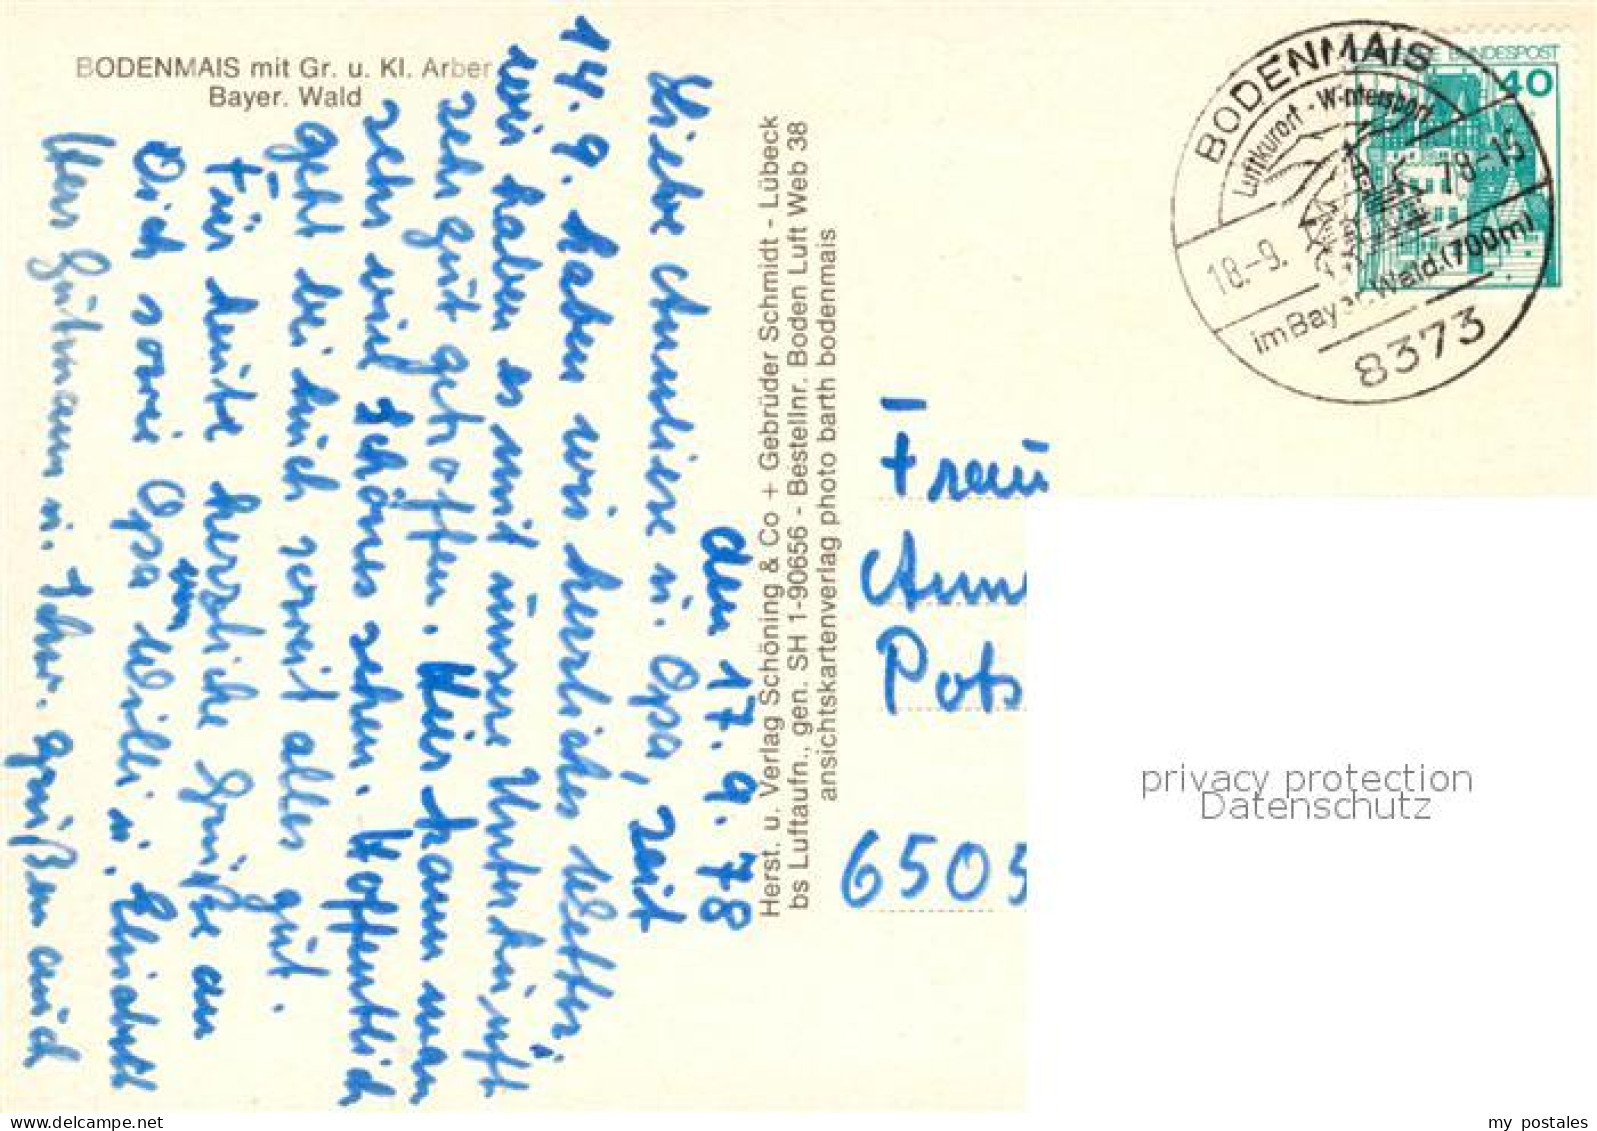 BODENMAIS mit Gr. u. Kl. Arber
Bayer. Wald
den 17. 9. 78
Liebe Anneliese u. Opa, seit
14. 9. haben wir herrliches Wetter.
wir haben es mit unsere Unterkunft
sehr gut getroffen. Hier kann man
sehr viel Schönes sehen. Hoffentlich
geht bei Euch soweit alles gut.
Für heute herzliche Grüße an
Dich sowie Opa von Willi u.
Herr Gutmann u. grüßen auch
Herst. u. Verlag Schöning & Co + Gebrüder Schmidt - Lübeck
bs Luftaufn., gen. SH 1-90656 - Bestellnr. Boden Luft Web 38
ansichtskartenverlag photo barth bodenmais
BODENMAIS
Luftkurort - Wintersport
18.-9. 78-15
im Bayer. Wald (700m)
8373
BUNDESPOST
40
Frau
Ann
Pots
6505
privacy protection
Datenschutz
delcampe.net
my_postales